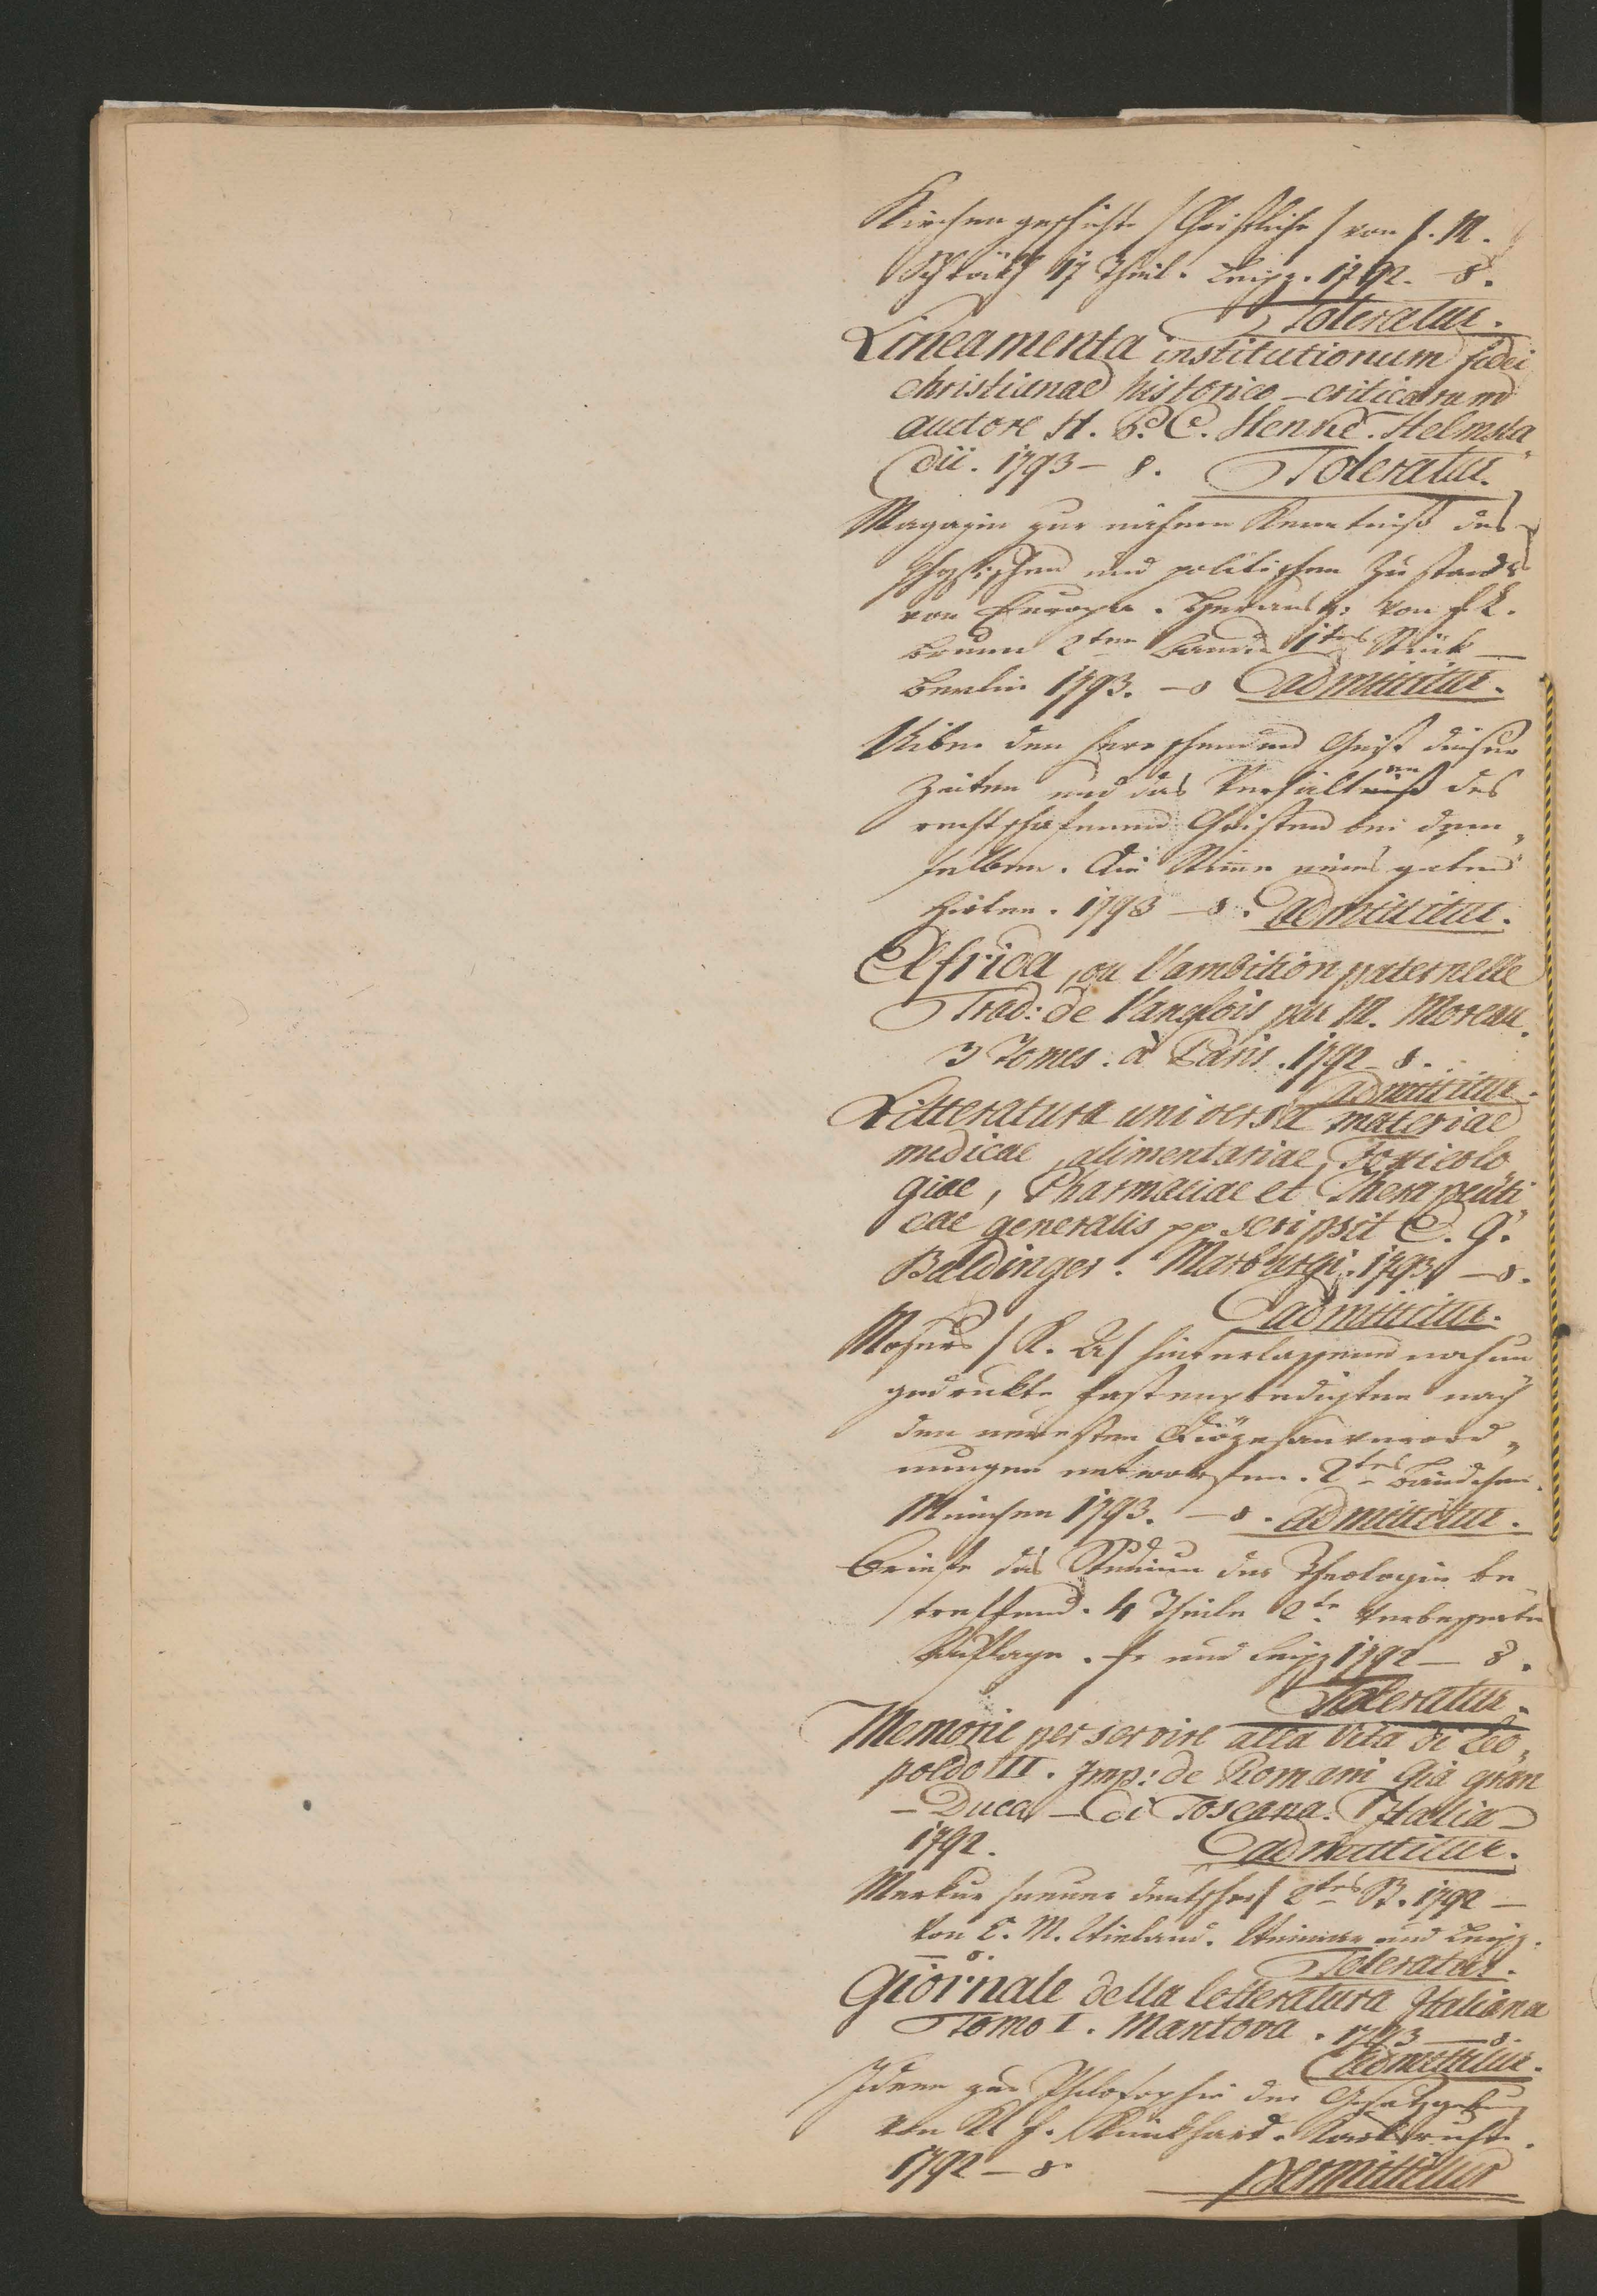 Kirchengeschichte /Christliche/ von J. M.
Schröckh 17 Theil. Leipz. 1792. 8.
Toleratur.
Lineamenta institutionum fidei
christianae historico-criticarum
auctore H. P. C. Henke. Helmsta„
dii. 1793 – 8. Toleratur.
Magazin zur nähern Kenntniß des
physischen und politischen Zustands
von Europa. Herausg: von F. L.
Brunn 2ten Bands 1tes Stück —
Berlin 1793. – 8 admittitur.
Uiber den herrschenden Geist dieser
Zeiten und das Verhalten des
rechtschafenen Christen bei dem„
selben. Die Stimme eines guten
Hirten. 1793 – 8. admittitur.
Elfrida, ou l'ambition paternelle
Trad: de l'anglois par M. Moreau.
3 Tomes. à Paris. 1792 – 8.
admittitur.
Litteratura universa materiae
medicae, alimentariae, Toxicolo
giae, Pharmaciae et Therapeuti„
cae generalis pp scripsit E. G.
Baldinger. Marburgi. 1793 – 8.
admittitur.
/ K. A/ hinterlassene noch un
gedrukte Fastenpredigten nach
den neuesten Diözesanverord„
nungen entworfen. 2tes Bändchen.
München 1793. – 8. admittitur.
Briefe das Studium der Theologie be
treffend. 4 Theile 2te verbesserte
Auflage. Fr und Leipz 1792 – 8.
Toleratur.
Memorie per servire alla Vita di Leo„
poldo II. Imp: de Romani Già gran
– Duca – di Toscana. Italia –
1792. admittitur.
Merkur /neuer deutscher/ 2tes St. 1792 —
von C. M. Wieland. Weimar und Leipz.
– 8. Toleratur.
Giornale della letteratura Italiana
Tomo I. Mantova. 1793 — 8.
admittitur.
Ideen zur Philosophie der Gesetzgebung
von K F. Karlsruhe.
1792 – 8 permittitur